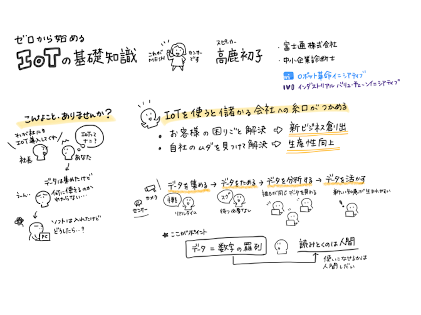 ゼロから始める
IoTの基礎知識
スピーカー
高鹿初子
・富士通株式会社
・中小企業診断士
ロボット革命イニシアティブ
IVI インダストリアルバリューチェーンイニシアティブ
こんなこと、ありませんか?
IoTを使うと儲かる会社への糸口がつかめる
・お客様の困りごと解決 ⇨ 新ビジネス創出
・自社のムダを見つけて解決 ⇨ 生産性向上
わが社にも
IoT導入してくれ
IoTって
ナニ?
社長
あなた
データは集めたけど
何に使えるのか
わからない…
ソフトは入れたけど
どうしたら…?
PC
データを集める → データをためる → データを分析する → データを活かす
カメラ
センサー
リアルタイム
* ここがポイント
データ = 数字の羅列
読みとくのは人間
使いこなせるかは
人間しだい